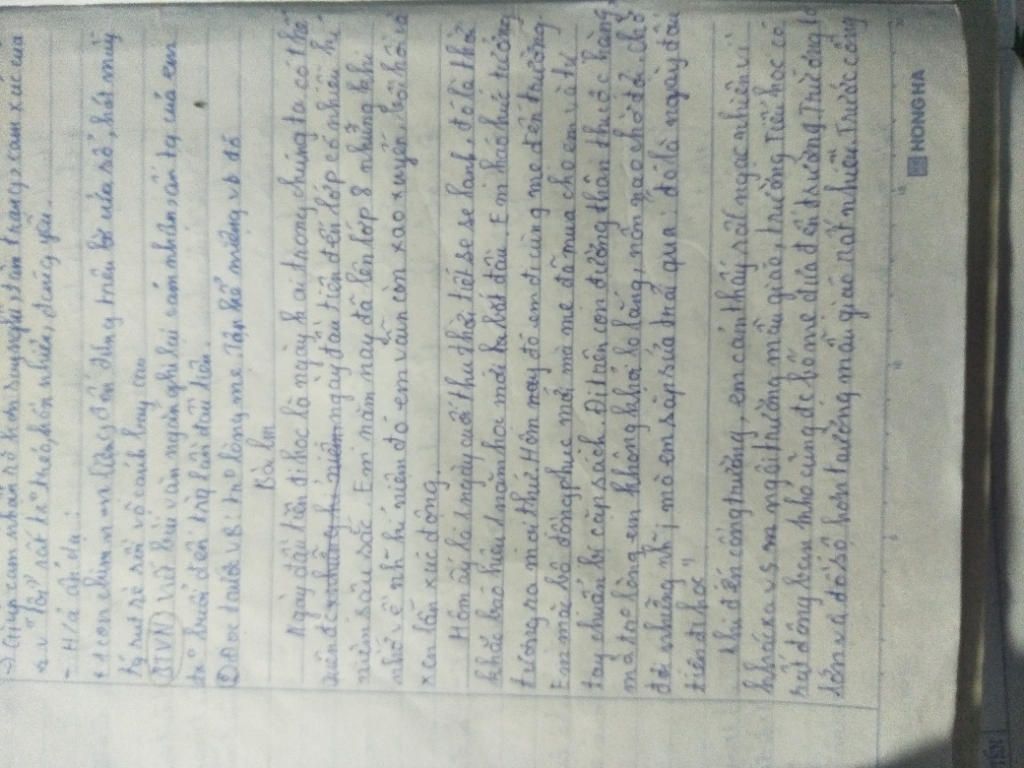 -> Giúp cảm nhận rõ hơn suy nghĩ, tâm trạng, cảm xúc của
n.v "tôi" rất trẻ thơ, hồn nhiên, đáng yêu.
- H/á ẩn dụ:
+ con chim non liệng đến đứng trên bờ cửa sổ, hót mấy
tiếng rụt rè rồi vỗ cánh bay cao
BTVN Viết bài văn ngắn ghi lại cảm nhận, ấn tg của em
trg buổi đến trg lần đầu tiên.
② Đọc trước VB: Trg lòng mẹ. Tập kể miệng vb đó
Bài làm
Ngày đầu tiên đi học là ngày hai trong chúng ta có thể
ngày đầu tiên đến lớp có nhiều kỉ
niệm sâu sắc. Em năm nay đã lên lớp 8 nhưng khi
nhớ về n~ kỉ niệm đó em vẫn còn xao xuyến, bồi hồi và
xen lẫn xúc động.
Hôm ấy là 1 ngày cuối thu thời tiết se se lạnh, đó là thời
khắc báo hiệu 1 năm học mới bắt đầu. Em háo hức tưởng
tượng ra mọi thứ. Hôm nay đó em đi cùng mẹ đến trường.
Em mặc bộ đồng phục mới mà mẹ đã mua cho em và tự
tay chuẩn bị cặp sách. Đi trên con đường thân thuộc hàng
mà tro lòng em không khỏi lo lắng, nôn nao chờ đợi. Chờ
đợi những thứ mà em sắp sửa trải qua; đó là ngày đầu
tiên đi học"
Khi đến cổng trường, em cảm thấy rất ngạc nhiên vì
khác xa vs ngôi trường mẫu giáo, trường Tiểu học có
rất đông bạn nhỏ cũng đc bố mẹ đưa đến trường. Trường to
lớn và đồ sộ hơn trường mẫu giáo rất nhiều. Trước cổng
HONG HA